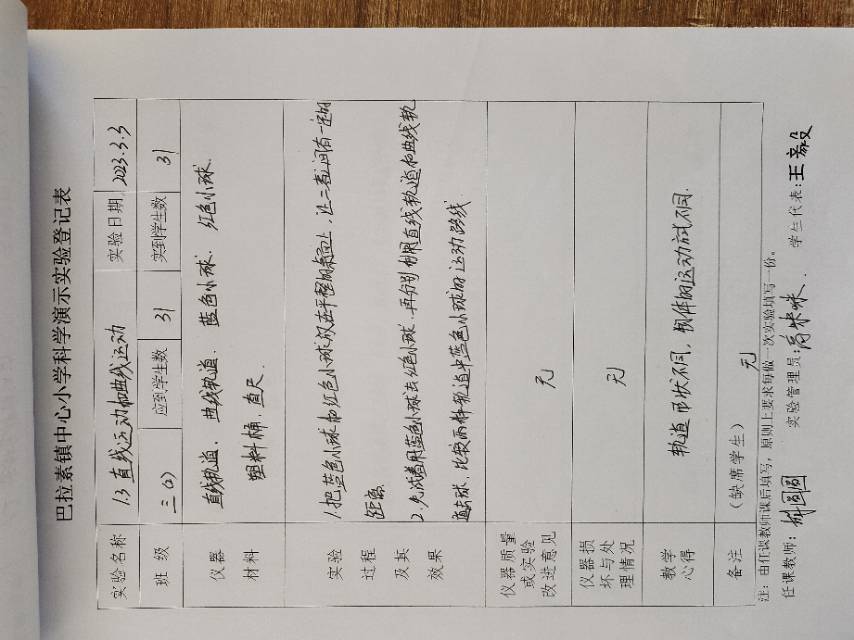 巴拉素镇中心小学科学演示实验登记表
实验名称 1.3 直线运动和曲线运动 实验日期 2023.3.3
班级 三(2) 应到学生数 31 实到学生数 31
仪器 直线轨道、曲线轨道、蓝色小球、红色小球、
材料 塑料桶、直尺
实验 1.把蓝色小球和红色小球放在平整的桌面上,让二者间有一定的
过程 距离
及其 2.先试着用蓝色小球去红色小球,再分别利用直线轨道和曲线轨
效果 道击球,比较两种轨道中蓝色小球的运动路线
仪器质量
或实验
改进意见 无
仪器损
坏与处
理情况 无
教学
心得 轨道形状不同,物体的运动方式不同.
备注 (缺席学生) 无
注:由任课教师课后填写,原则上要求每做一次实验填写一份。
任课教师: 圆圆 实验管理员: 学生代表:王毅